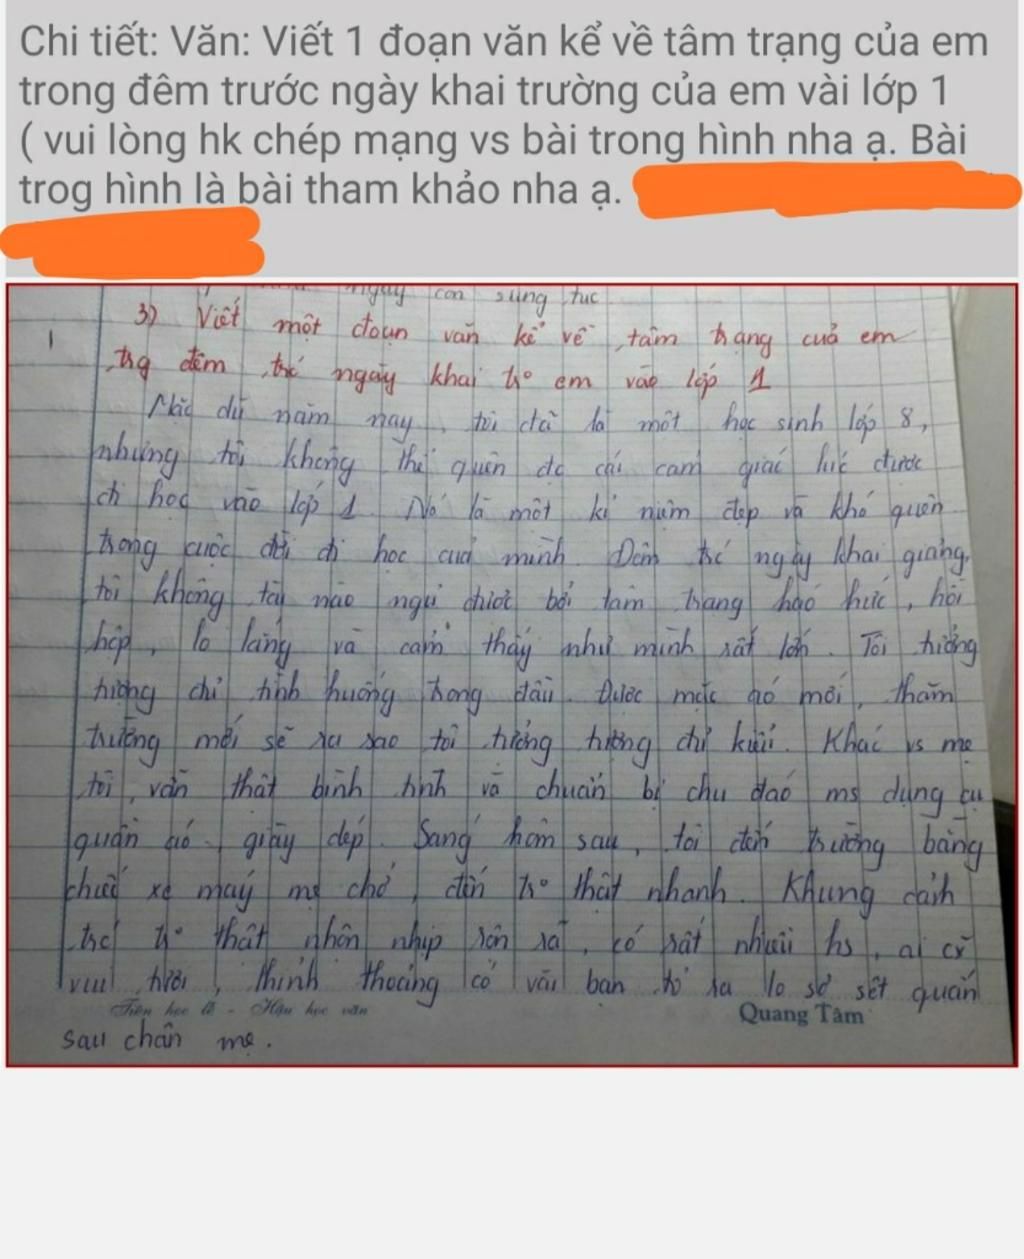 Chi tiết: Văn: Viết 1 đoạn văn kể về tâm trạng của em
trong đêm trước ngày khai trường của em vài lớp 1
( vui lòng hk chép mạng vs bài trong hình nha ạ. Bài
trog hình là bài tham khảo nha ạ.
ngay con sung tuc
3) Viết một đoạn văn kể về tâm trạng của em
trg đêm trc ngày khai trº em vào lớp 1
Mặc dù năm nay, tôi đã là một học sinh lớp 8,
nhưng tôi không thể quên đc cái cảm giác lúc được
đi học vào lớp 1. Nó là một kỉ niệm đẹp và khó quên
trong cuộc đời đi học của mình. Đêm trc ngày khai giảng,
tôi không tài nào ngủ được bởi tâm trạng háo hức, hồi
hộp, lo lắng và cảm thấy như mình rất lớn. Tôi tưởng
tượng chỉ tình huống trong đầu. Được mặc áo mới, thăm
trường mới sẽ ra sao tôi tưởng tượng đủ kiểu. Khác vs mẹ
tôi, vẫn thật bình tĩnh và chuẩn bị chu đáo ms dụng cụ
quần áo, giày dép. Sáng hôm sau, tôi đến trường bằng
chiếc xe máy mẹ chở, đến trº thật nhanh. Khung cảnh
trc trº thật nhộn nhịp rộn rã, có rất nhiều hs, ai cx
vui tươi, thỉnh thoảng có vài bạn tỏ ra lo sợ sệt quấn
Tiên học lễ - Hậu học văn Quang Tâm
sau chân mẹ.